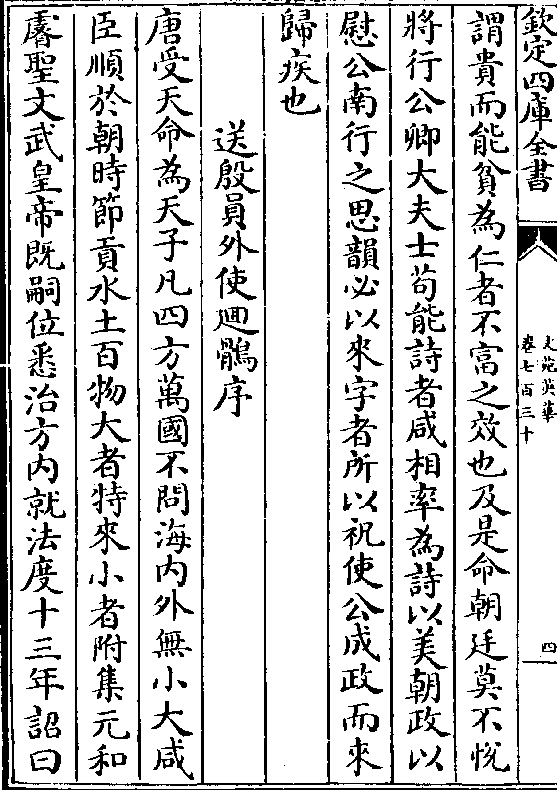 欽定四庫全書
文苑英華
卷七百三十
四
謂貴而能貧為仁者不富之效也及是命朝廷莫不悅
將行公卿大夫士苟能詩者咸相率為詩以美朝政以
慰公南行之思韻必以來字者所以祝使公成政而來
歸疾也
送殷員外使迴鶻序
唐受天命為天子凡四方萬國不問海内外無小大咸
臣順於朝時節貢水土百物大者特來小者附集元和
睿聖文武皇帝既嗣位悉治方内就法度十三年詔曰